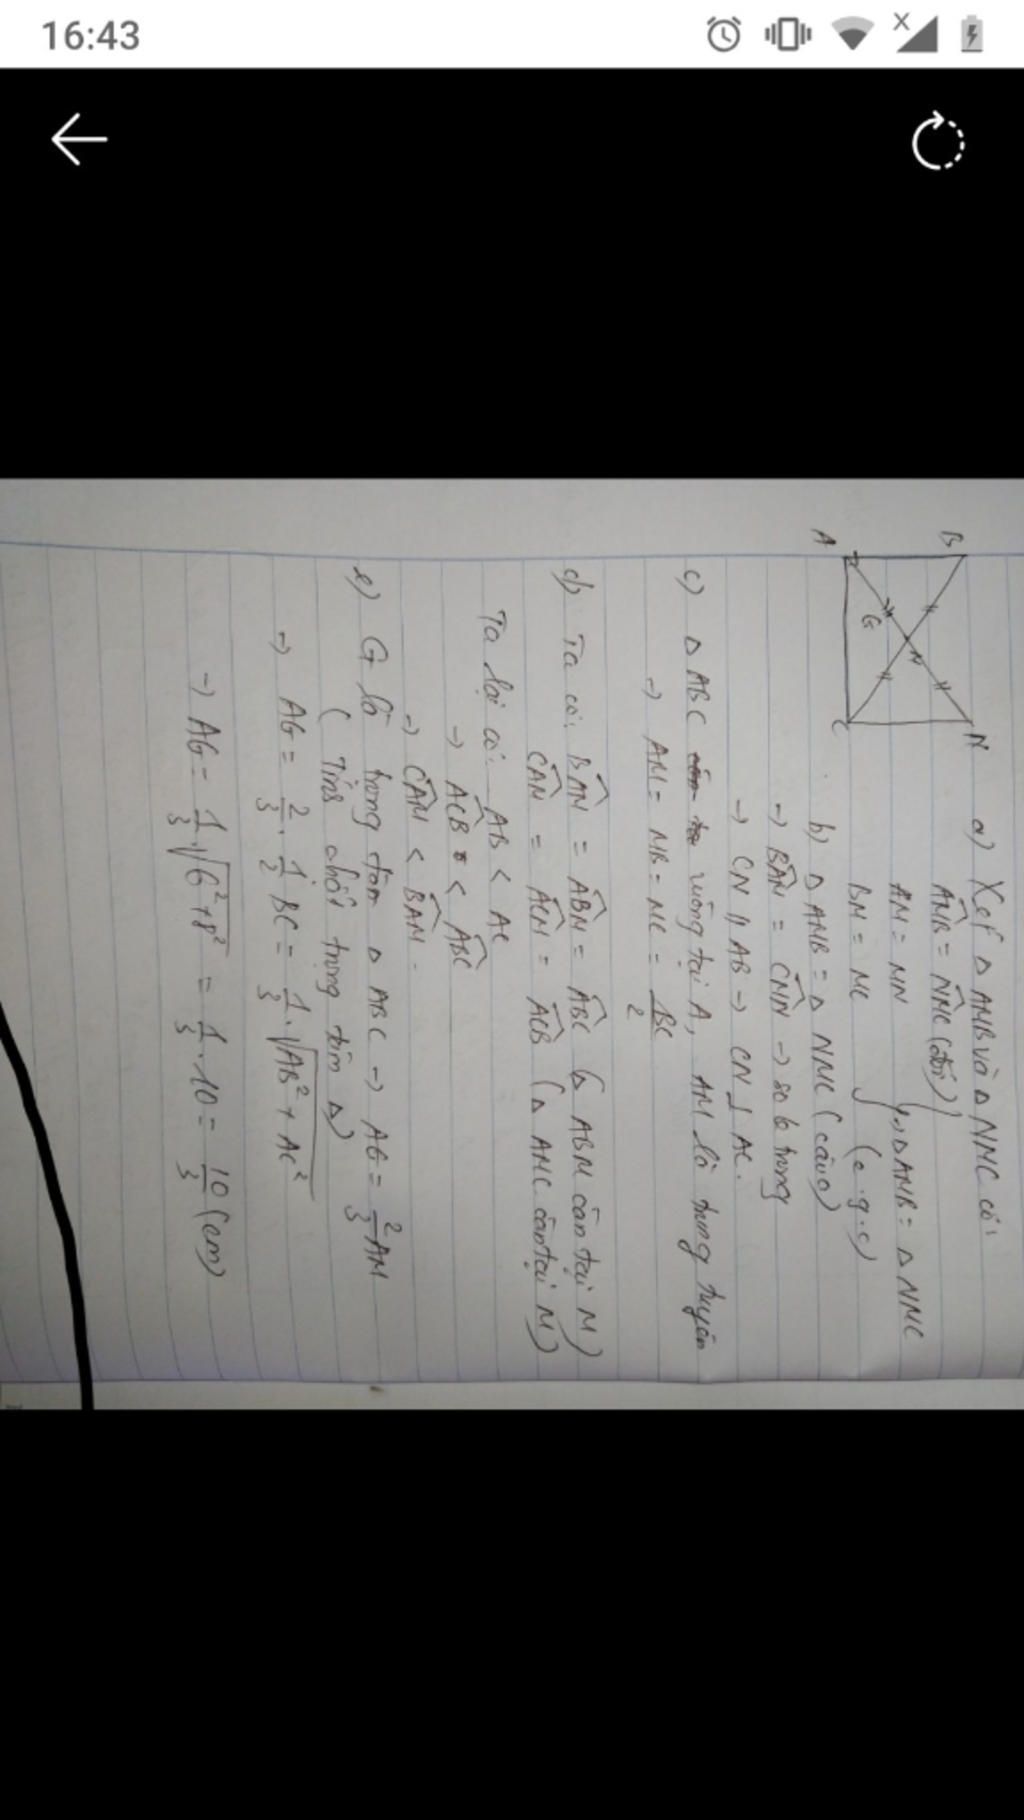 16:43
X
B
N
M
G
A
C
a) Xét Δ AMB và Δ NMC có:
AMB = NMC (đối)
AM = MN
BM = MC
} → Δ AMB = Δ NMC
(c.g.c)
b) Δ AMB = Δ NMC (câu a)
→ BAN = CNN → so le trong
→ CN // AB → CN ⊥ AC.
c) Δ ABC vuông tại A, AM là trung tuyến
→ AM = MB = MC = BC/2
d) Ta có: BAM = ABM = ABC (Δ ABM cân tại M)
CAM = ACM = ACB (Δ AMC cân tại M)
Ta lại có: AB < AC
→ ACB < ABC
→ CAM < BAM.
e) G là trọng tâm Δ ABC → AG = 2/3 AM
( Tính chất trọng tâm Δ)
→ AG = 2/3 . 1/2 BC = 1/3 . √AB² + AC²
→ AG = 1/3 . √6² + 8² = 1/3 . 10 = 10/3 (cm)